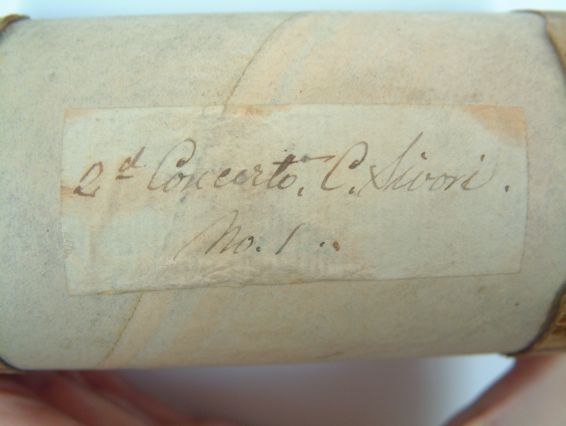 2d Concerto. C. Sivori.
No. 1..